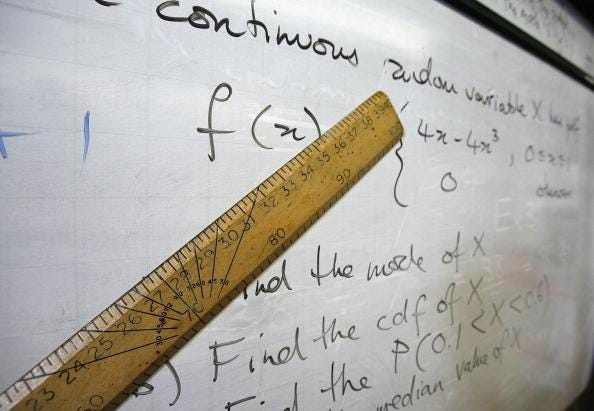 continuous random variable X has pdf
+ 1
f(x)
{ 4x - 4x³ , 0≤x≤1
0 otherwise
ind the mode of X
) Find the cdf of X
ind the P(0.1 < X < 0.6)
median value of X
23 24 25 26 27 28 29 30 31 32 33 34 35 36 37 38 39
80 90